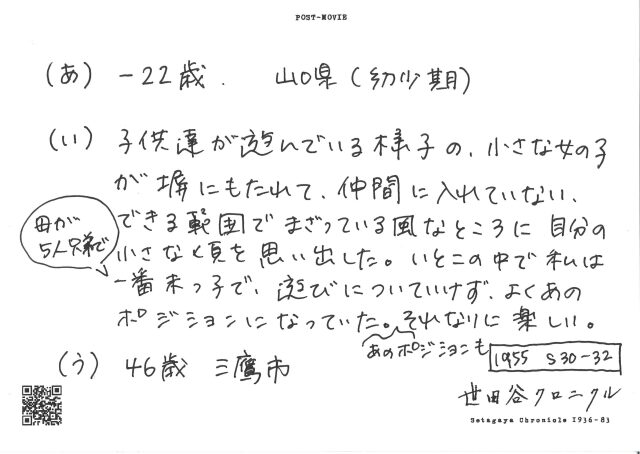 POST-MOVIE
(あ) -22歳. 山口県(幼少期)
(い) 子供達が遊んでいる様子の、小さな女の子
が塀にもたれて、仲間に入れていない、
できる範囲でまざっている風なところに自分の
小さな頃を思い出した。いとこの中で私は
一番末っ子で、遊びについていけず、よくあの
ポジションになっていた。それなりに楽しい。
母が
5人兄弟で
あのポジションも
(う) 46歳 三鷹市
1955 S30-32
世田谷クロニクル
Setagaya Chronicle 1936-83